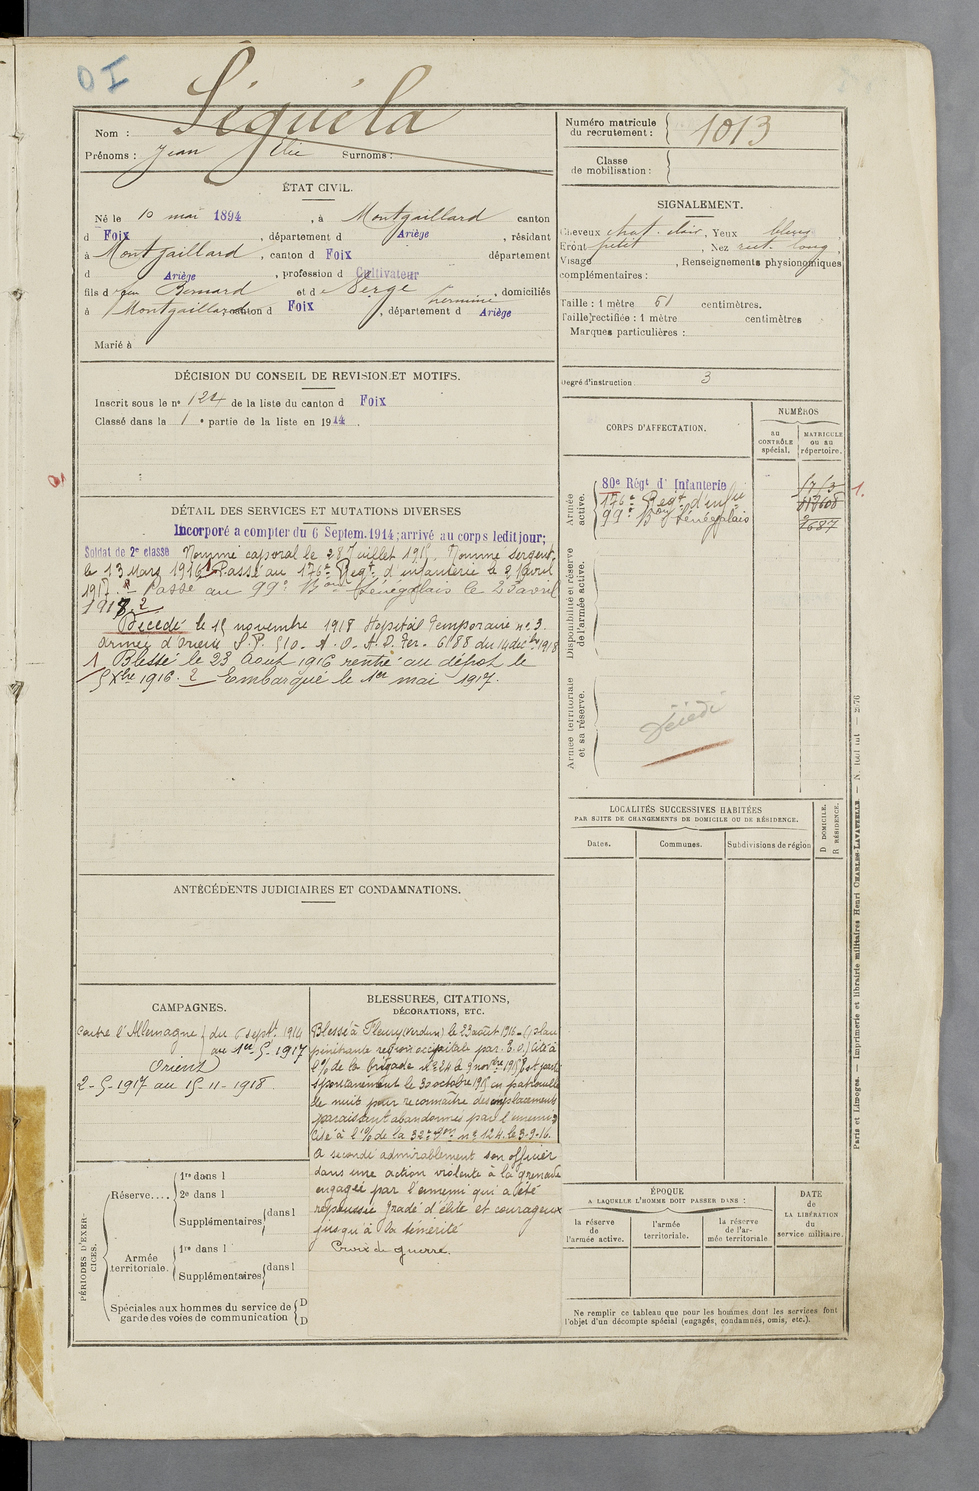 OI
Nom : Séguéla
Prénoms : Jean Elie Surnoms :
Numéro matricule
du recrutement : 1013
Classe
de mobilisation :
ÉTAT CIVIL.
Né le 10 mai 1894, à Montgaillard canton
d Foix, département d Ariège, résidant
à Montgaillard, canton d Foix département
d Ariège, profession d Cultivateur
fils d feu Bernard et de Serge Hermine, domiciliés
à Montgaillard canton d Foix, département d Ariège
Marié à
SIGNALEMENT.
Cheveux chat. clair, Yeux bleus
Front petit, Nez rect. long,
Visage , Renseignements physionomiques
complémentaires :
Taille : 1 mètre 61 centimètres.
Taille rectifiée : 1 mètre centimètres
Marques particulières :
Degré d'instruction. 3
DÉCISION DU CONSEIL DE REVISION ET MOTIFS.
Inscrit sous le nº 124 de la liste du canton d Foix
Classé dans la 1 e partie de la liste en 1914.
DÉTAIL DES SERVICES ET MUTATIONS DIVERSES
Incorporé a compter du 6 Septem. 1914; arrivé au corps ledit jour;
Soldat de 2e classe Nommé caporal le 28 Juillet 1915. Nommé sergent
le 13 Mars 1916. 1 Passé au 176e Regt d'infanterie le 2 Avril
1917. 2 Passé au 99e Bon Sénégalais le 23 avril
1918. 2
Décédé le 15 novembre 1918 Hopital temporaire nº 3.
Armée d'orient S.P. 510. A.O. A.D. Ger. 6188 du 14 décbre 1918
1 Blessé le 23 Aout 1916 rentré au dépôt le
5 Xbre 1916. 2 Embarqué le 1er mai 1917.
CORPS D'AFFECTATION.
NUMÉROS
au
CONTRÔLE
spécial.
MATRICULE
ou au
répertoire.
Armée
active.
80e Régt d' Infanterie
176e Regt d'infie
99e Bon Sénégalais
2687
1.
Disponibilité et réserve
de l'armée active.
Armée territoriale
et sa réserve.
Décédé
LOCALITÉS SUCCESSIVES HABITÉES
PAR SUITE DE CHANGEMENTS DE DOMICILE OU DE RÉSIDENCE.
Dates.
Communes.
Subdivisions de région
D DOMICILE.
R RÉSIDENCE.
ANTÉCÉDENTS JUDICIAIRES ET CONDAMNATIONS.
CAMPAGNES.
Contre l'Allemagne du 6 septe 1914
au 1er 5-1917
Orient
2-5-1917 au 15-11-1918
BLESSURES, CITATIONS,
DÉCORATIONS, ETC.
Blessé à Fleury (Verdun) le 23 août 1916 - (plaie
pénétrante région occipitale par E.O.) Cité à
l'O/ de la brigade nº 24 du 9 novbre 1915 Est parti
spontanément le 30 octobre 1915 en patrouille
de nuit pour reconnaître des emplacements
paraissant abandonnés par l'ennemi
Cité à l'O/ de la 32e Don nº 124 le 3-9-16.
A secondé admirablement son officier
dans une action violente à la grenade
engagée par l'ennemi qui a été
repoussé Gradé d'élite et courageux
jusqu'à la témérité
Croix de guerre.
PÉRIODES D'EXER-
CICES.
Réserve....
1re dans l
2e dans l
Supplémentaires dans l
Armée
territoriale.
1re dans l
Supplémentaires dans l
Spéciales aux hommes du service de
garde des voies de communication
D
D
ÉPOQUE
A LAQUELLE L'HOMME DOIT PASSER DANS :
la réserve
de
l'armée active.
l'armée
territoriale.
la réserve
de l'ar-
mée territoriale
DATE
de
LA LIBÉRATION
du
service militaire.
Ne remplir ce tableau que pour les hommes dont les services font
l'objet d'un décompte spécial (engagés, condamnés, omis, etc.).
Paris et Limoges. — Imprimerie et librairie militaires Henri CHARLES-LAVAUZELLE.